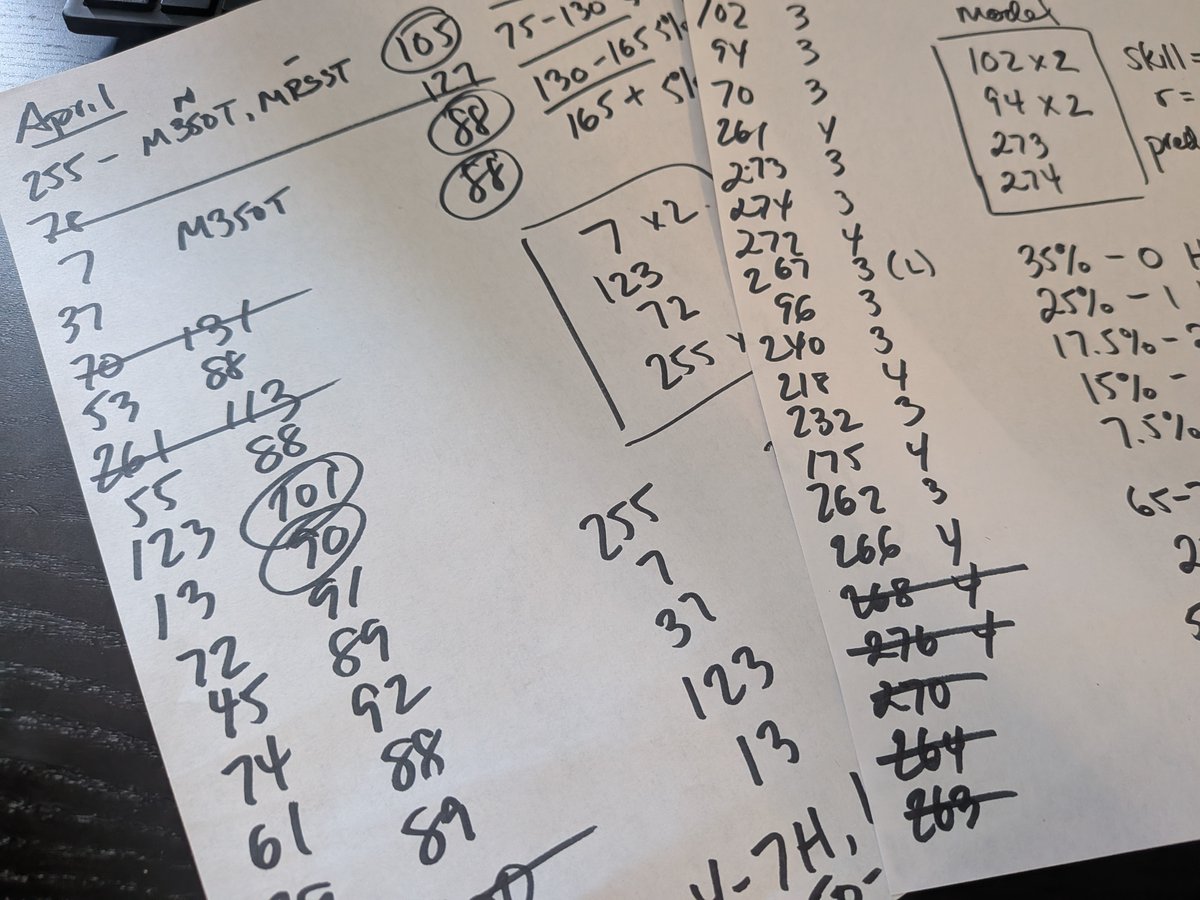 April
255 - M350T, MR33T
78 127
7 M350T 88
37 88
70 131
53 88
261 113
55 88
123 101
13 90
72 91
45 89
74 92
61 88
89
105
75-130
130-165 5%
165+ 5%
7 x2
123
72
255
255
7
37
123
13
102 3
94 3
70 3
261 4
273 3
274 3
272 4
267 3 (L)
96 3
240 3
218 4
232 3
175 4
262 3
266 4
268 4
276 4
270
264
263
Model
102 x 2
94 x 2
273
274
skill =
r =
pred
35% - 0 H
25% - 1
17.5% - 2
15% -
7.5%
65-